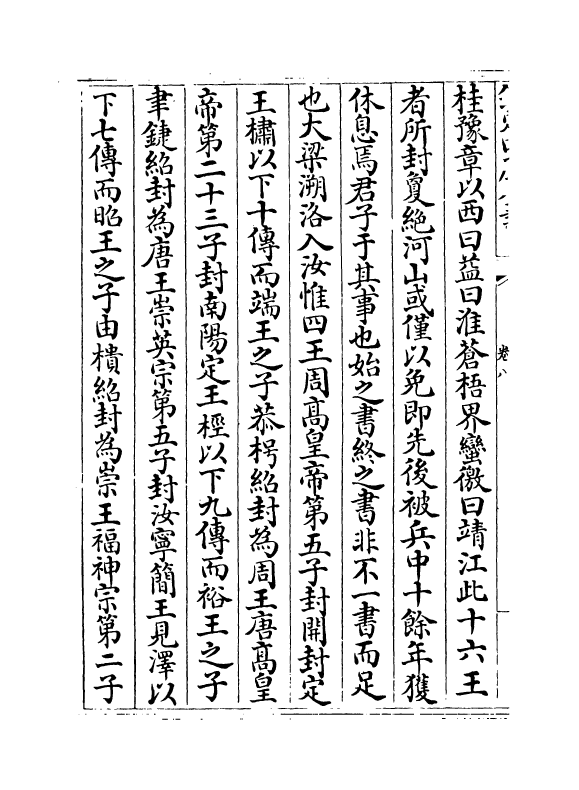 卷八
桂豫章以西曰益曰淮蒼梧界蠻徼曰靖江此十六王
者所封敻絶河山或僅以免即先後被兵中十餘年獲
休息焉君子于其事也始之書終之書非不一書而足
也大梁溯洛入汝惟四王周髙皇帝第五子封開封定
王橚以下十傳而端王之子恭枵紹封為周王唐髙皇
帝第二十三子封南陽定王桱以下九傳而裕王之子
聿鍵紹封為唐王崇英宗第五子封汝寧簡王見澤以
下七傳而昭王之子由樻紹封為崇王福神宗第二子